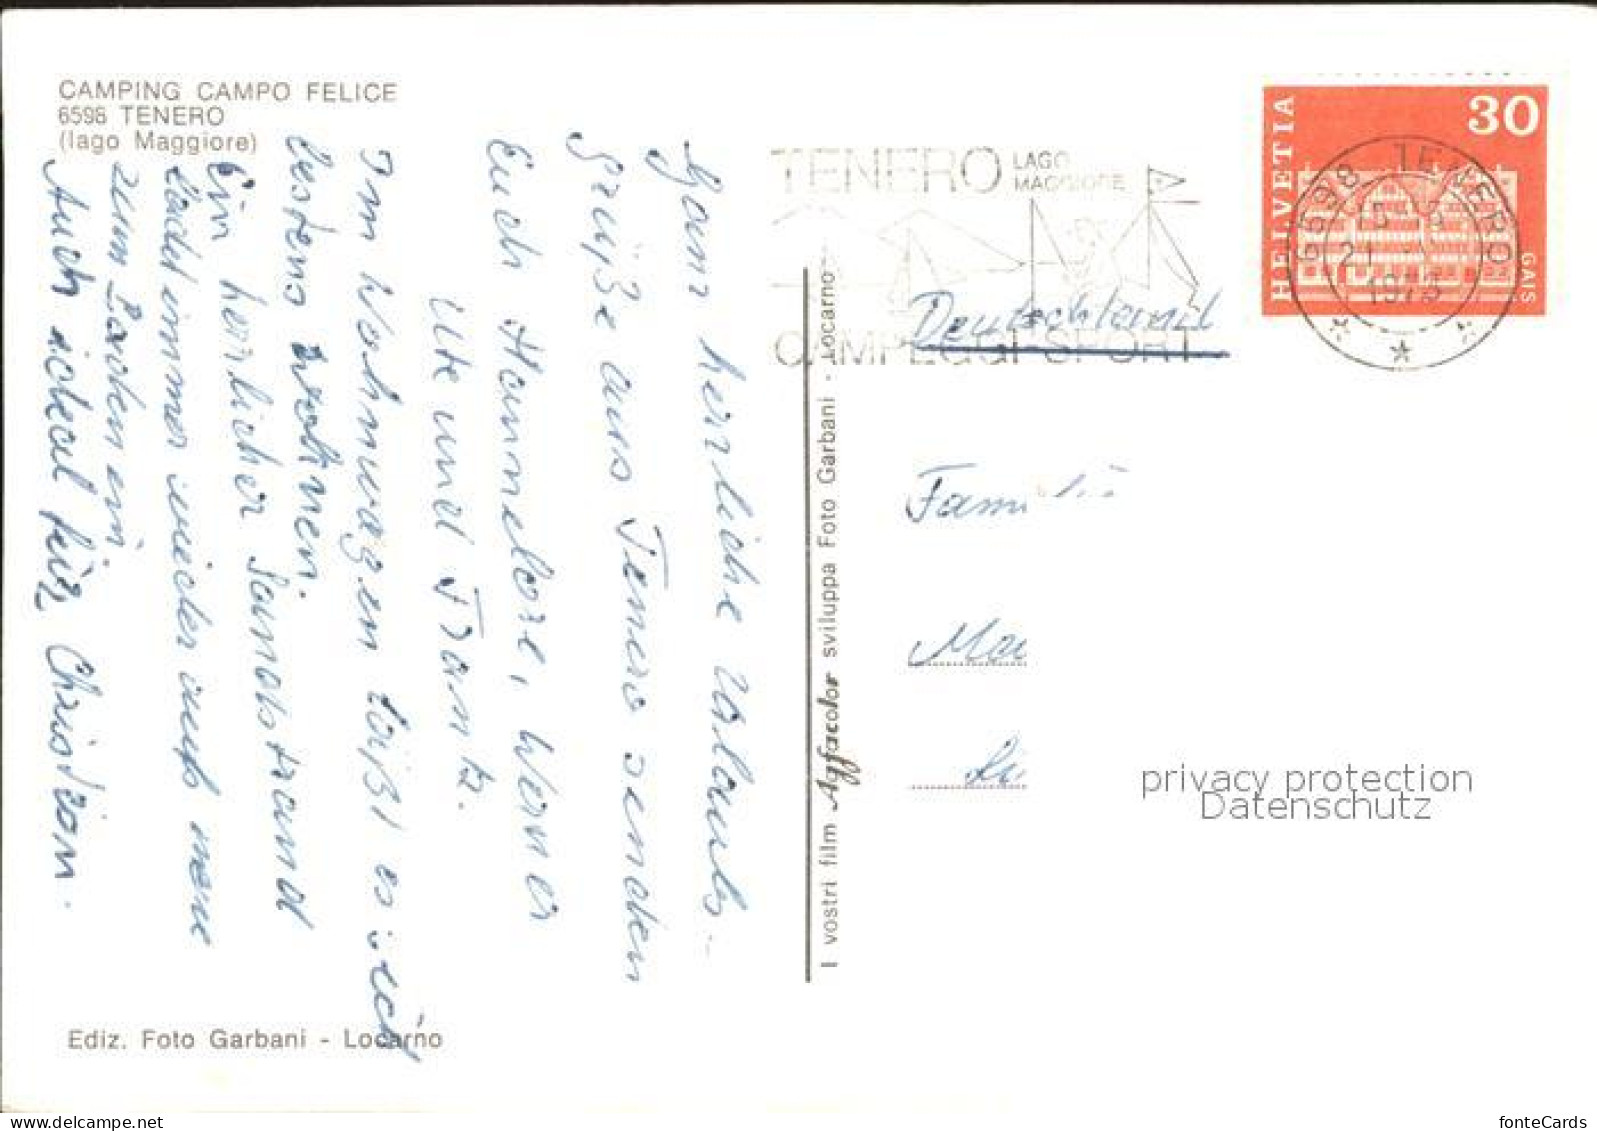 CAMPING CAMPO FELICE
6598 TENERO
(lago Maggiore)
Ganz herzliche Urlaubs-
grüße aus Tenero senden
Euch Hannelore, Werner
Ute und Frank.
Im Wohnwagen läßt es sich
bestens wohnen.
Ein herrlicher Sandstrand
ladet immer wieder aufs neue
zum Baden ein.
Auch ideal für Christian.
Ediz. Foto Garbani - Locarno
I vostri film Agfacolor sviluppa Foto Garbani - Locarno
TENERO LAGO
MAGGIORE
CAMPEGGI-SPORT
HELVETIA
30
GAIS
6598 TENERO
1973
Deutschland
Familie
privacy protection
Datenschutz
fonteCards
www.delcampe.net